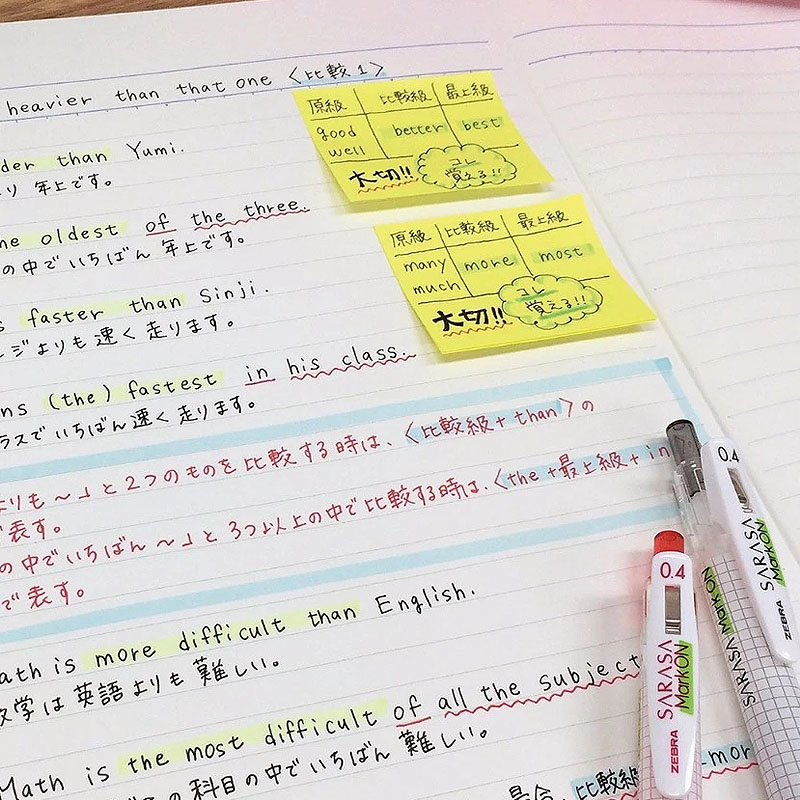 heavier than that one 〈比較1〉
than Yumi.
年上です。
oldest of the three.
の中でいちばん年上です。
faster than Sinji.
よりも速く走ります。
(the) fastest in his class.
でいちばん速く走ります。
よりも〜」と2つのものを比較する時は、〈比較級+than〉の
で表す。
の中でいちばん〜」と3つ以上の中で比較する時は、〈the+最上級+in
で表す。
Math is more difficult than English.
数学は英語よりも難しい。
Math is the most difficult of all the subject
の科目の中でいちばん難しい。
比較級
原級 比較級 最上級
good better best
well
大切!! コレ
覚える!!
原級 比較級 最上級
many more most
much
大切!! コレ
覚える!!
0.4
SARASA
MarkON
ZEBRA
SARASA MarkON
0.4
SARASA
MarkON
ZEBRA